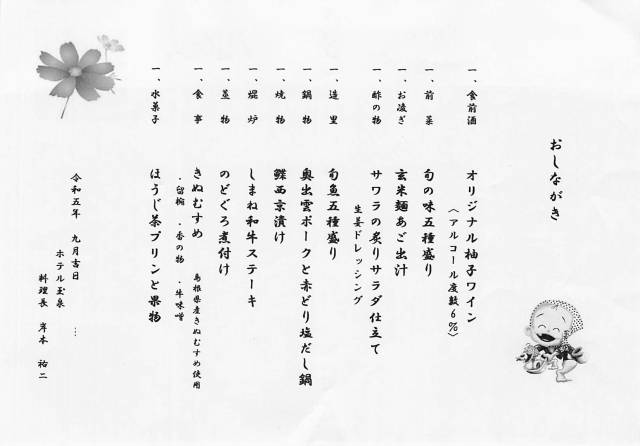 おしながき
一、食前酒 オリジナル柚子ワイン
〈アルコール度数6%〉
一、前菜 旬の味五種盛り
一、お凌ぎ 玄米麺あご出汁
一、酢の物 サワラの炙りサラダ仕立て
生姜ドレッシング
一、造里 旬魚五種盛り
一、鍋物 奥出雲ポークと赤どり塩だし鍋
一、焼物 鰈西京漬け
一、焜炉 しまね和牛ステーキ
一、蒸物 のどぐろ煮付け
一、食事 きぬむすめ 島根県産きぬむすめ使用
・留椀 ・香の物 ・牛味噌
一、水菓子 ほうじ茶プリンと果物
令和五年 九月吉日
ホテル玉泉 …
料理長 岸本 祐二